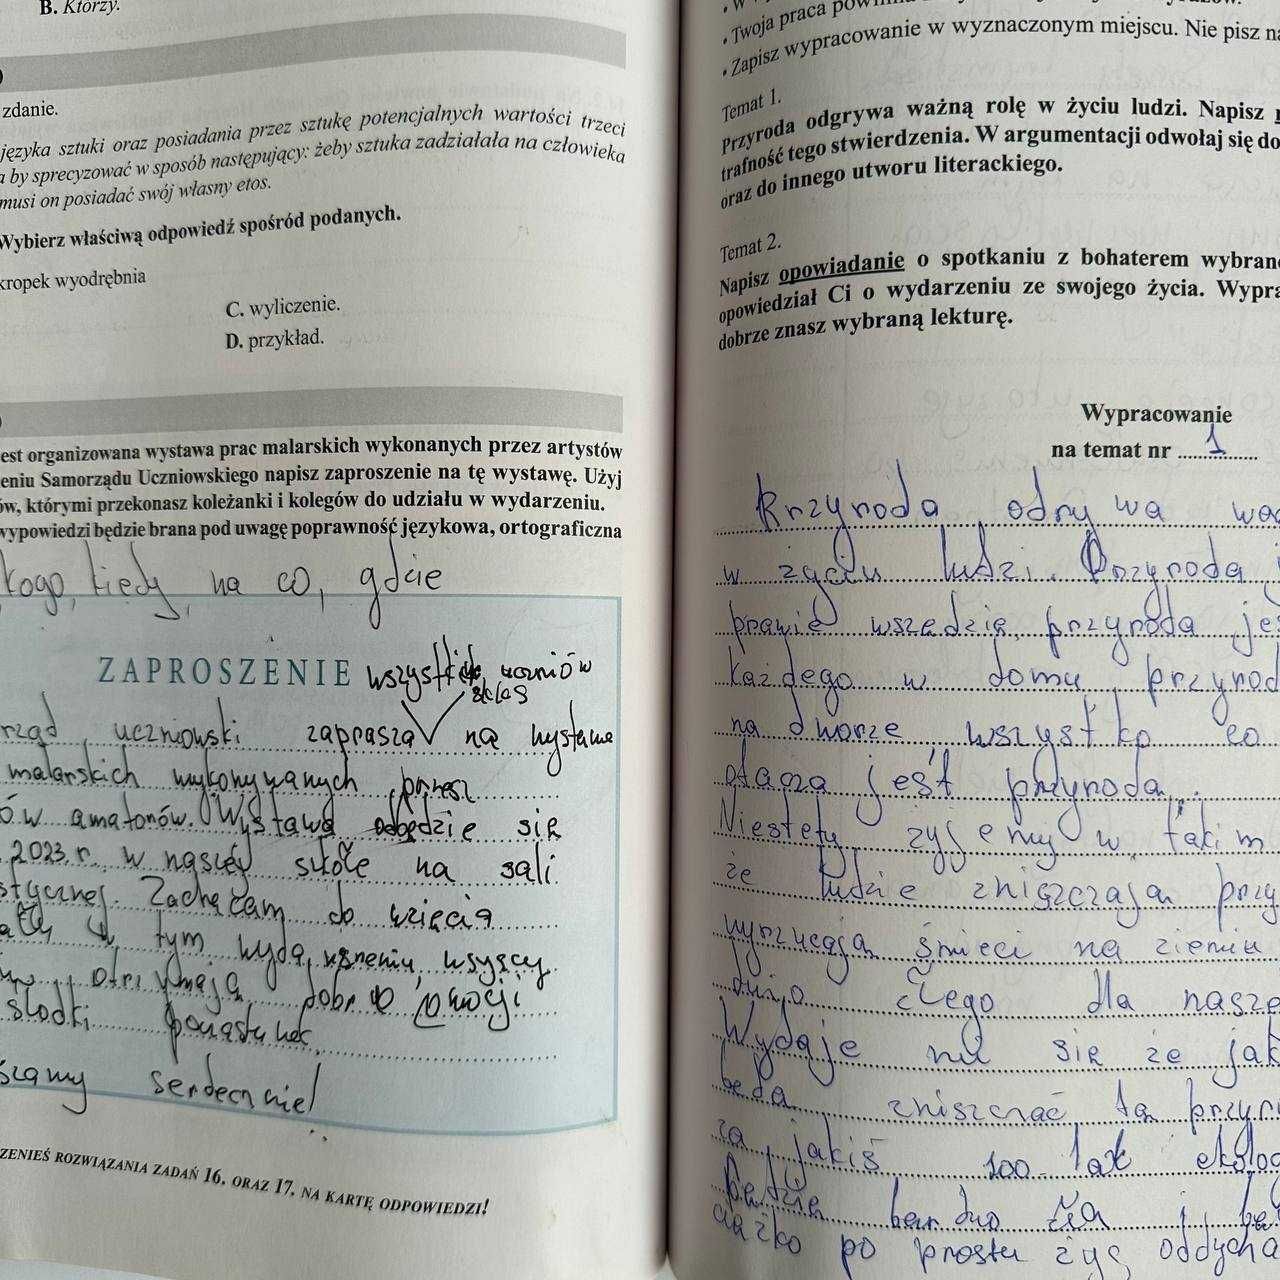 B. Którzy.
zdanie.
języka sztuki oraz posiadania przez sztukę potencjalnych wartości trzeci
by sprecyzować w sposób następujący: żeby sztuka zadziałała na człowieka
musi on posiadać swój własny etos.
Wybierz właściwą odpowiedź spośród podanych.
kropek wyodrębnia
C. wyliczenie.
D. przykład.
est organizowana wystawa prac malarskich wykonanych przez artystów
eniu Samorządu Uczniowskiego napisz zaproszenie na tę wystawę. Użyj
ów, którymi przekonasz koleżanki i kolegów do udziału w wydarzeniu.
wypowiedzi będzie brana pod uwagę poprawność językowa, ortograficzna
kogo, kiedy, na co, gdzie
ZAPROSZENIE wszystkich uczniów
rząd uczniowski zaprasza na wystawe
malarskich wykonywanych przez
ów amatorów. Wystawa odbędzie się
2023 r. w naszej szkole na sali
stycznej. Zachęcam do wzięcia
w tym wydarzeniu, wszyscy
otrzymają dobre emocji
słodki poczęstunek
szamy serdecznie!
ZENIEŚ ROZWIĄZANIA ZADAŃ 16. ORAZ 17. NA KARTĘ ODPOWIEDZI!
• Twoja praca powin
• Zapisz wypracowanie w wyznaczonym miejscu. Nie pisz na
Temat 1.
Przyroda odgrywa ważną rolę w życiu ludzi. Napisz
trafność tego stwierdzenia. W argumentacji odwołaj się do
oraz do innego utworu literackiego.
Temat 2.
Napisz opowiadanie o spotkaniu z bohaterem wybrane
opowiedział Ci o wydarzeniu ze swojego życia. Wypra
dobrze znasz wybraną lekturę.
Wypracowanie
na temat nr 1
Przyroda odrywa waż
w życiu ludzi. Przyroda j
prawie wszędzie, przyroda jes
każdego w domu, przyrod
na dworze, wszystko co
otacza jest przyroda.
Niestety żyjemy w takim
że ludzie zniszczają przy
wyrzucają śmieci na ziemiu
dużo czego dla nasze
Wydaje mi się że jak
będą zniszczać tą przyr
za jakiś 100 lat ekolog
będzie bardzo zła i bę
ciążko po prostu żyć oddycha